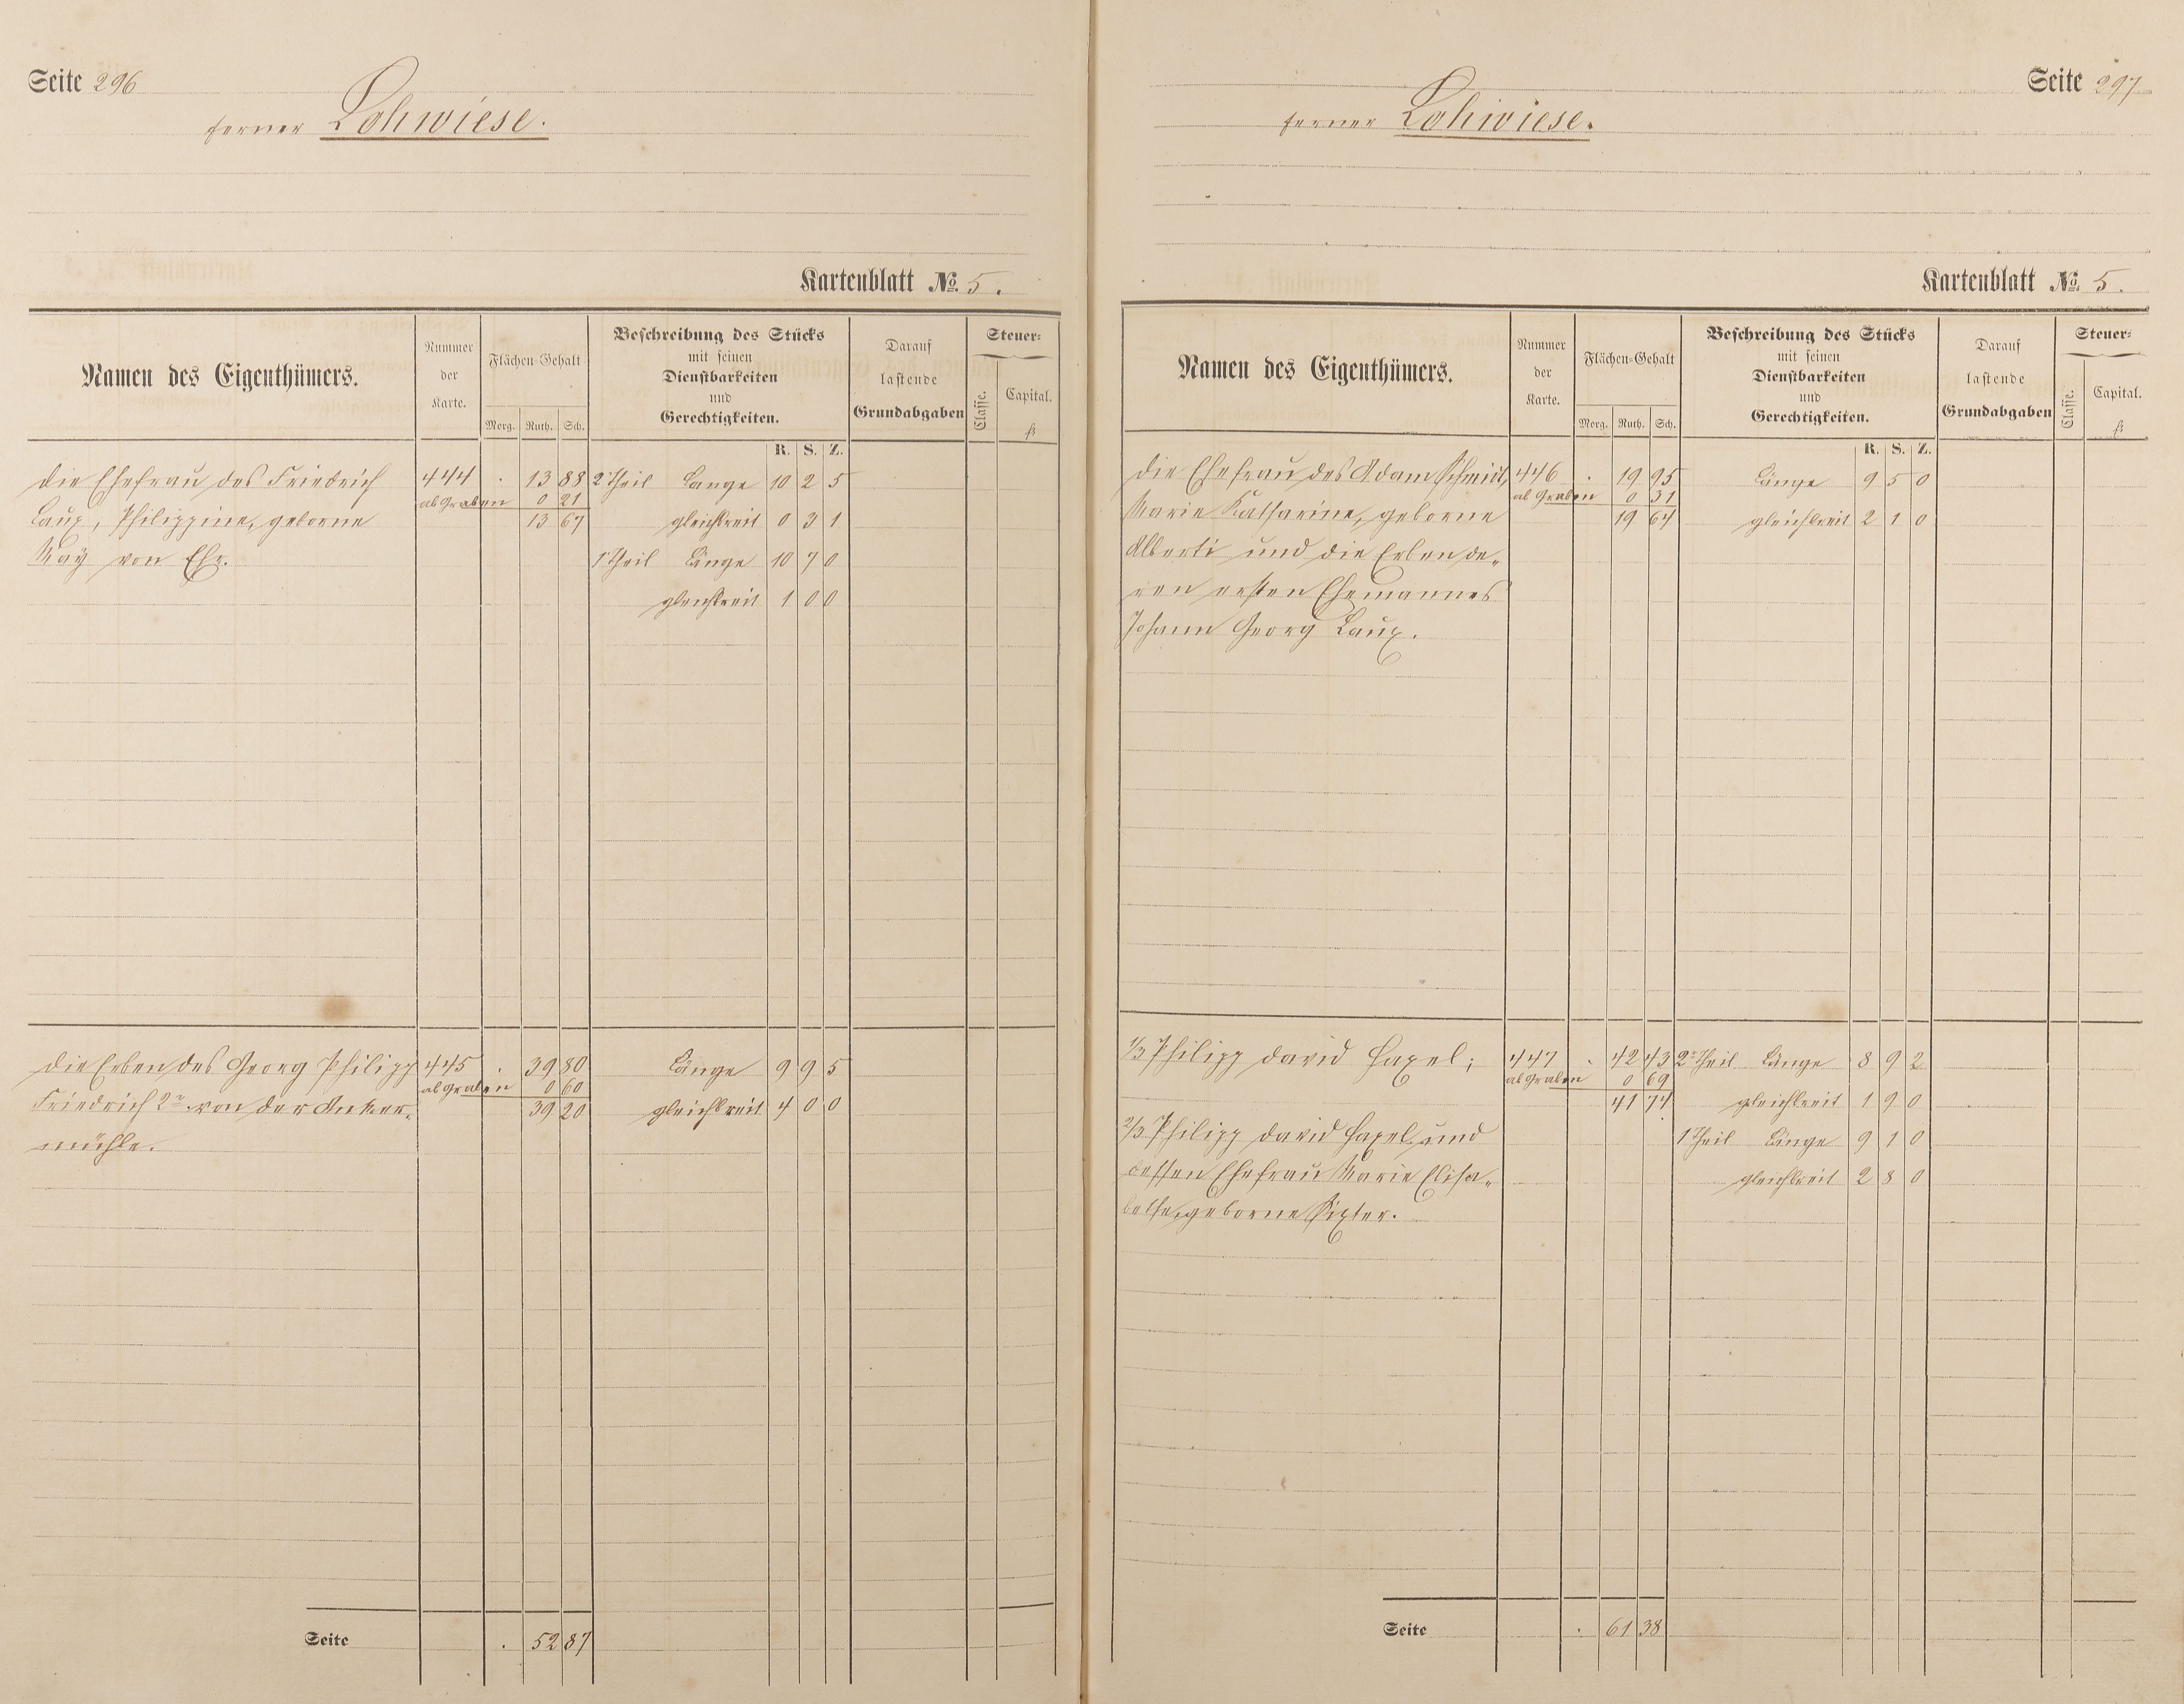 Seite 296
ferner Lohwiese.
Kartenblatt No. 5.
Namen des Eigenthümers.
Nummer der Karte.
Flächen-Gehalt
Morg. Ruth. Sch.
Beschreibung des Stücks
mit seinen
Dienstbarkeiten
und
Gerechtigkeiten.
Darauf
lastende
Grundabgaben
Steuer-
Classe.
Capital.
fl
R. S. Z.
die Ehefrau des Friedrich 444 . 13 88 2 Theil Länge 10 2 5
ab Graben 0 21
Laux, Philippine, geborne 13 67 gleichbreit 0 3 1
May von Ehr. 1 Theil Länge 10 7 0
gleichbreit 1 0 0
die Erben des Georg Philipp 445 . 39 80 Länge 9 9 5
ab Graben 0 60
Friedrich 2r von der Anker- 39 20 gleichbreit 4 0 0
mühle.
Seite . 52 87
Seite 297
ferner Lohwiese.
Kartenblatt No. 5.
Namen des Eigenthümers.
Nummer der Karte.
Flächen-Gehalt
Morg. Ruth. Sch.
Beschreibung des Stücks
mit seinen
Dienstbarkeiten
und
Gerechtigkeiten.
Darauf
lastende
Grundabgaben
Steuer-
Classe.
Capital.
fl
R. S. Z.
die Ehefrau des Adam Schmidt, 446 . 19 95 Länge 9 5 0
ab Graben 0 31
Marie Katharine, geborne 19 64 gleichbreit 2 1 0
Alberti und die Erben de-
ren ersten Ehemannes
Johann Georg Laux.
1/3 Philipp David Hapel; 447 . 42 43 2r Theil Länge 8 9 2
ab Graben 0 69
41 74 gleichbreit 1 9 0
2/3 Philipp David Hapel und 1 Theil Länge 9 1 0
dessen Ehefrau Marie Elisa- gleichbreit 2 8 0
bethe, geborne Sixter.
Seite . 61 38